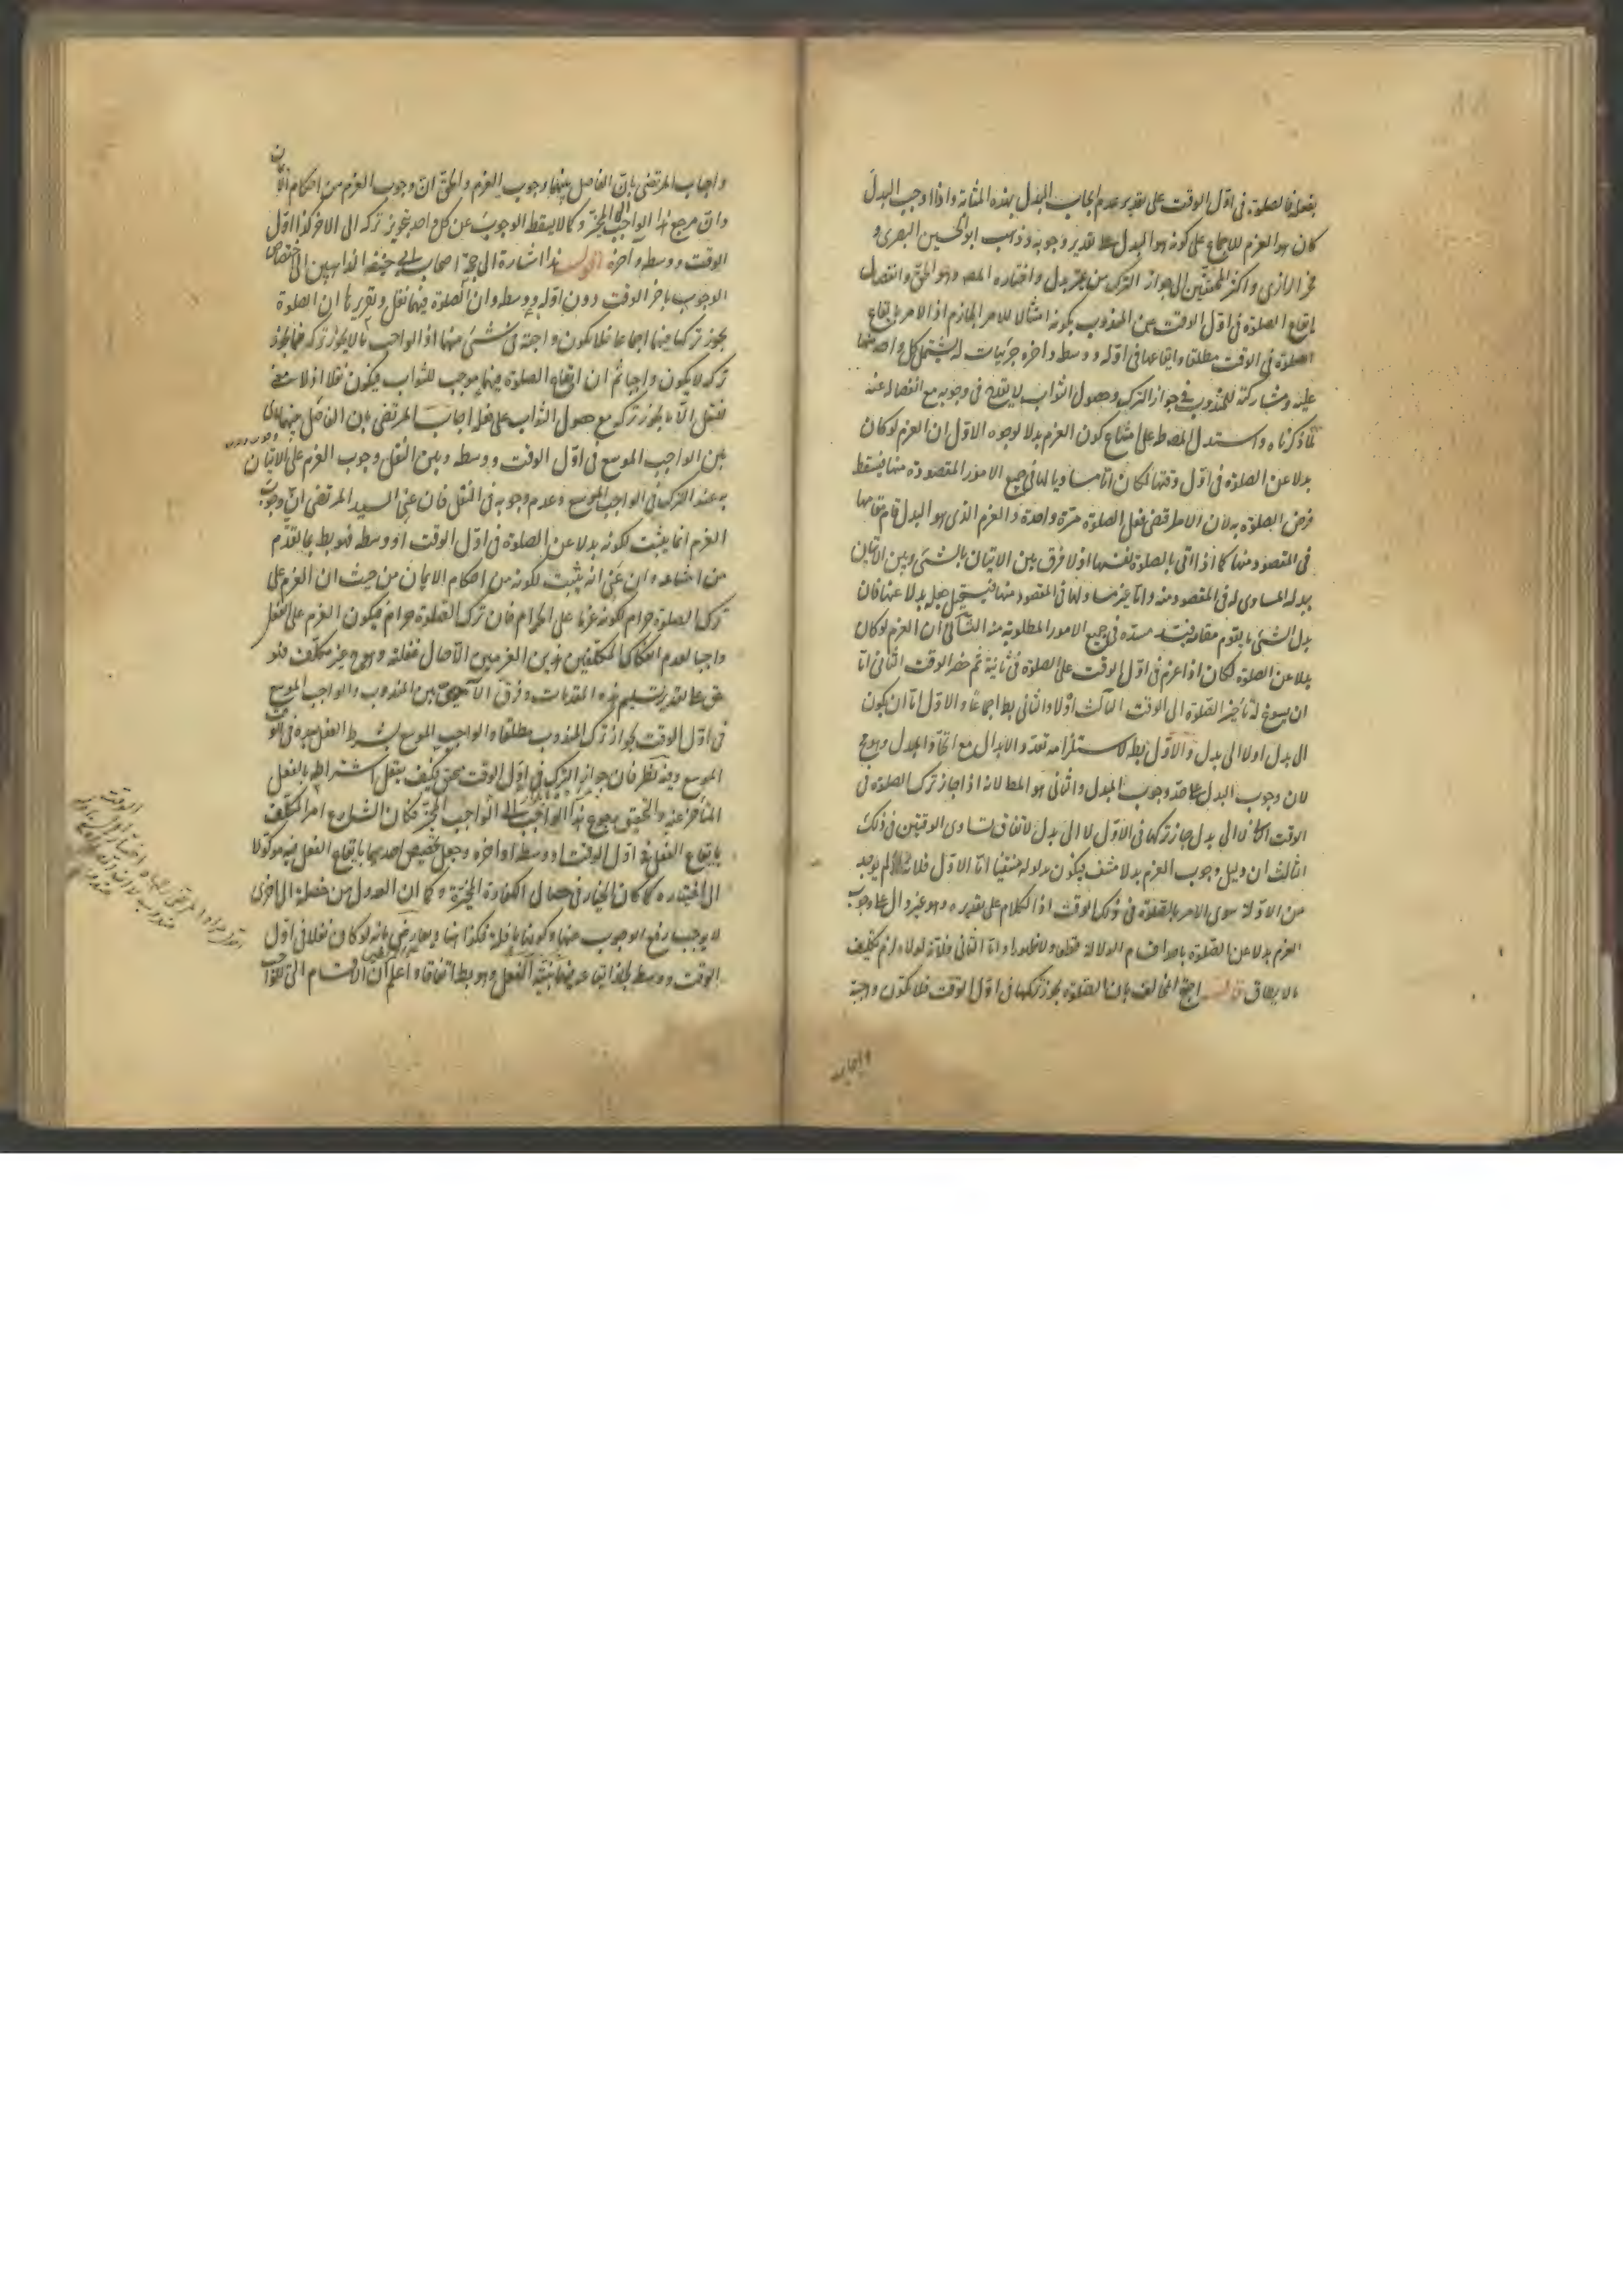 بفعله فالصلوة فى اوّل الوقت على تقدير عدم ايجاب البدل بهذه المثابة واذا وجب البدل
كان هو العزم للاجماع على كونه هو البدل على تقدير وجوبه وذهب ابو الحسين البصرى و
فخر الرازى واكثر المحققين الى جواز الترك من غير بدل واختاره المص وهو الحق وانفصال
ايقاع الصلوة فى اوّل الوقت عن المندوب بكونه امتثالا للامر الجازم اذ الامر بايقاع
الصلوة فى الوقت مطلقا وايقاعها فى اوله ووسطه واخره جزئيات له يشتمل كل واحد منها
عليه ومشاركته للمندوب فى جواز الترك وحصول الثواب لا يقدح فى وجوبه مع انفصاله عنه
بما ذكرناه واستدل المص على امتناع كون العزم بدلا لوجوه الاول ان العزم لو كان
بدلا عن الصلوة فى اول وقتها لكان اما مساويا لها فى جميع الامور المقصودة منها فيسقط
فرض الصلوة به لان الامر اقتضى فعل الصلوة مرة واحدة والعزم الذى هو البدل قام مقامها
فى المقصود منها كما اذا اتى بالصلوة نفسها اذ لا فرق بين الاتيان بالشئ وبين الاتيان
ببدله المساوى له فى المقصود منه واما غير مساو لها فى المقصود منها فيستحيل جعله بدلا عنها فان
بدل الشئ ما يقوم مقامه ويسد مسده فى جميع الامور المطلوبة منه الثانى ان العزم لو كان
بدلا عن الصلوة لكان اذا عزم فى اوّل الوقت على الصلوة فى ثانيه ثم حضر الوقت الثانى اما
ان يسوغ له تأخير الصلوة الى الوقت الثالث اولا والثانى بط اجماعا والاول اما ان يكون
الى بدل اولا الى بدل والاول بط لاستلزامه تعدد الابدال مع اتحاد المبدل وهو مح
لان وجوب البدل على حد وجوب المبدل والثانى هو المط لانه اذا جاز ترك الصلوة فى
الوقت الثانى لا الى بدل جاز تركها فى الاول لا الى بدل لاتفاق تساوى الوقتين فى ذلك
الثالث ان دليل وجوب العزم بدلا منتف فيكون مدلوله منتفيا اما الاول فلانه لم يوجد
من الادلة سوى الامر بالصلوة فى ذلك الوقت اذ الكلام على تقديره وهو غير دال على وجوب
العزم بدلا عن الصلوة باحد اقسام الدلالة قطعا واما الثانى فلانه لولاه لزم تكليف
ما لا يطاق قال احتج المخالف بان الصلوة يجوز تركها فى اوّل الوقت فلا تكون واجبة
واجاب المرتضى بان الفاصل بينهما وجوب العزم والحق ان وجوب العزم من احكام الايمان
وان مرجع هذا الواجب الى المخير وكما لا يسقط الوجوب عن كل واحد بتجويز تركه الى الاخر كذا اول
الوقت ووسطه واخره اقول هذا اشارة الى حجة اصحاب ابى حنيفة الذاهبين الى اختصاص
الوجوب باخر الوقت دون اوله ووسطه وان الصلوة فيهما نفل وتقريرها ان الصلوة
يجوز تركها فيهما اجماعا فلا تكون واجبة فى شئ منهما اذ الواجب ما لا يجوز تركه فما يجوز
تركه لا يكون واجبا ثم ان ايقاع الصلوة فيهما موجب للثواب فيكون نفلا اذ لا معنى
للنفل الا ما يجوز تركه مع حصول الثواب على فعله اجاب المرتضى بان الفاصل بينهما اى
بين الواجب الموسع فى اوّل الوقت ووسطه وبين النفل وجوب العزم على الاتيان
به عند الترك فى الواجب الموسع وعدم وجوبه فى النفل فان عنى السيد المرتضى ان وجوب
العزم انما يثبت لكونه بدلا عن الصلوة فى اوّل الوقت او وسطه فهو بط بما تقدم
من امتناعه وان عنى انه يثبت لكونه من احكام الايمان من حيث ان العزم على
ترك الصلوة حرام لكونه عزما على الحرام فان ترك الصلوة حرام فيكون العزم على الفعل
واجبا لعدم انفكاك المكلفين من هذين العزمين الا حال غفلته وهو ح غير مكلف فهو
حق على تقدير تسليم هذه المقدمات وفرق بين المندوب والواجب الموسع
فى اوّل الوقت بجواز ترك المندوب مطلقا والواجب الموسع بشرط الفعل بعده فى الوقت
الموسع وفيه نظر فان جواز الترك فى اوّل الوقت محقق فكيف يعقل اشتراطه بالفعل
المتأخر عنه والتحقيق مرجوع هذا الواجب الى الواجب المخير فكان الشارع امر المكلف
بايقاع الفعل فى اوّل الوقت او وسطه او اخره وجعل تخصيص احدها بايقاع الفعل فيه موكولا
الى اختياره كما كان الخيار فى خصال الكفارة المخيرة وكما ان العدول من خصلة الى اخرى
لا يوجب رفع الوجوب عنها وكونها نافلة فكذا هنا ويعارض بانه لو كان نفلا فى اوّل
الوقت ووسطه لجاز ايقاعه فيهما بنية النفل وهو بط اتفاقا واعلم ان الاقسام التى
واجاب